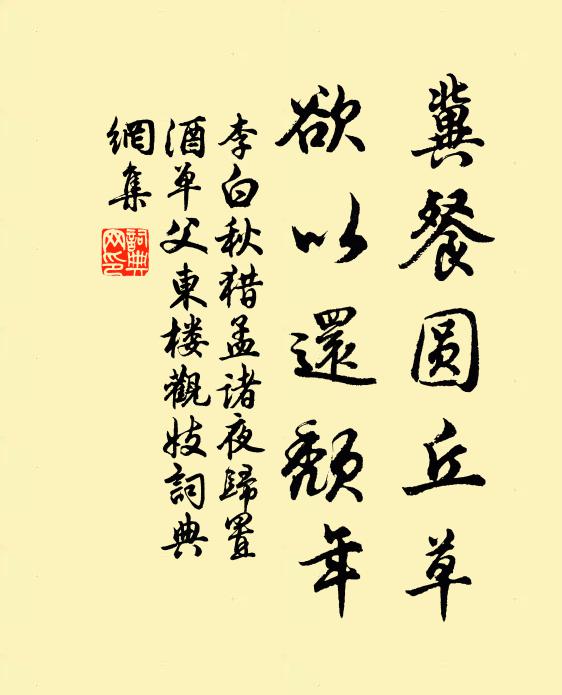 冀餐圆丘草
欲以還頹年
李白秋猎孟诸夜歸置
酒单父東楼觀妓詞典
網集
詞典網印